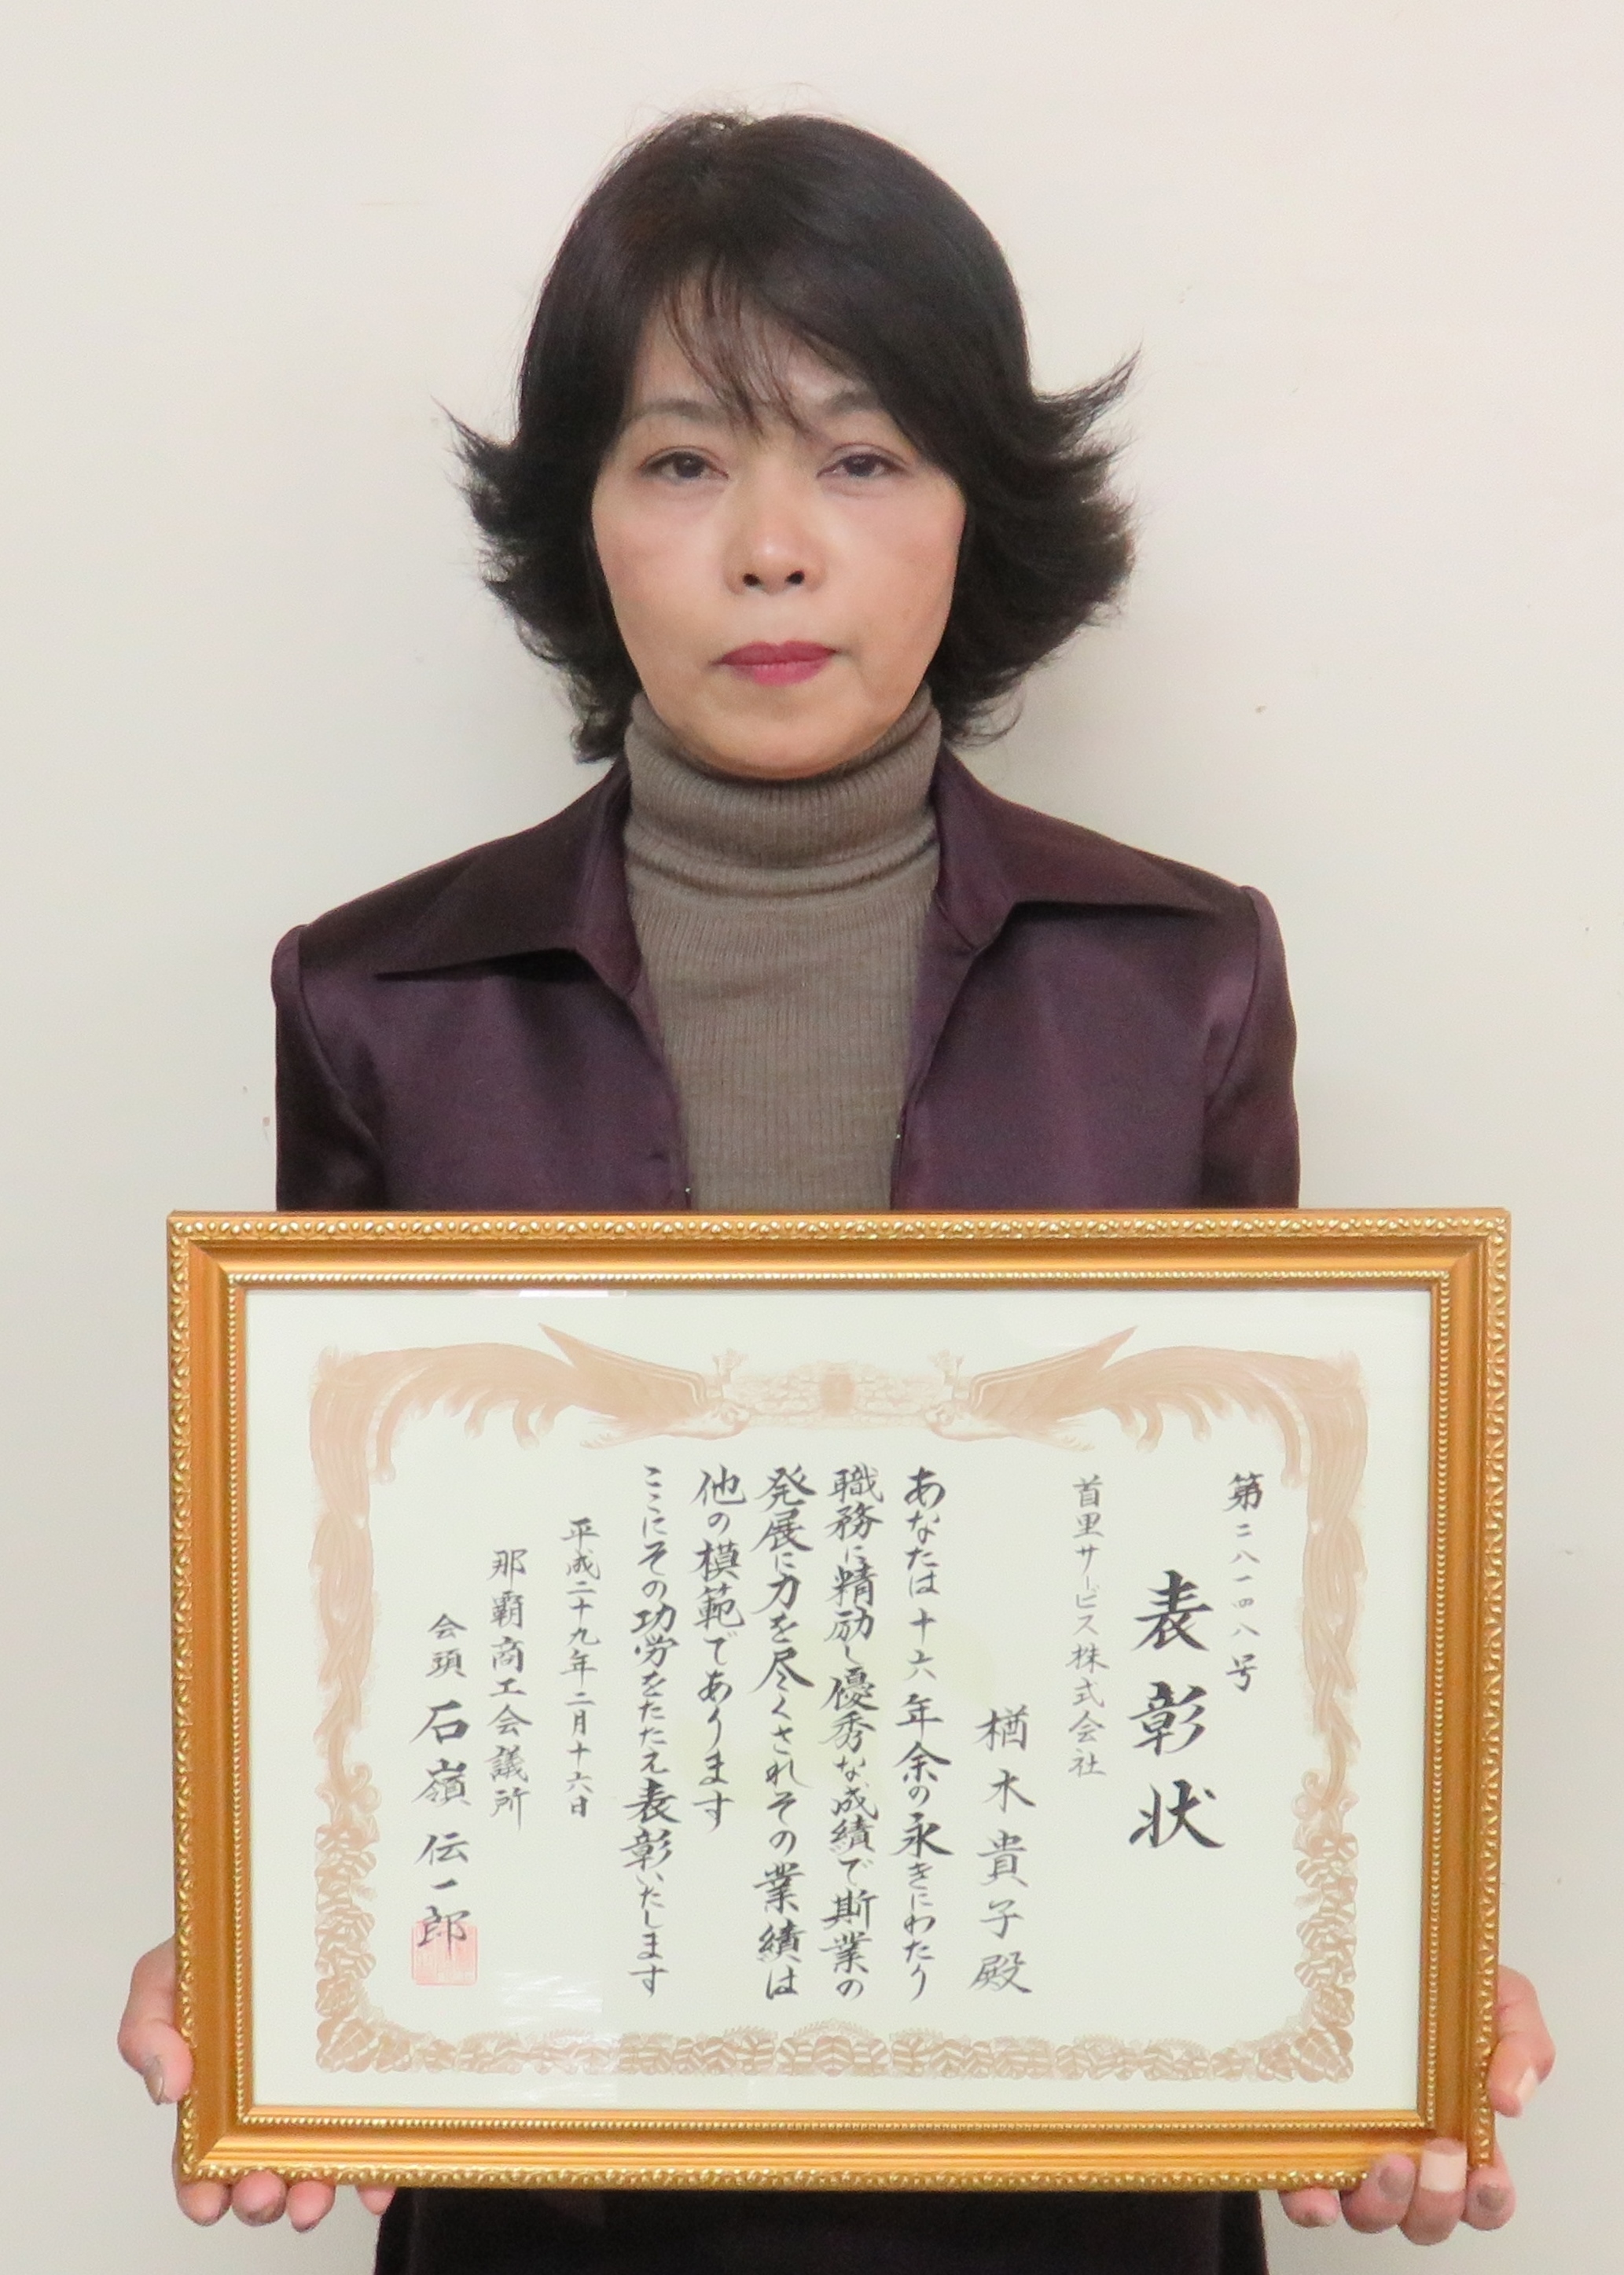 第二八一四八号
表彰状
首里サービス株式会社
楢木貴子殿
あなたは十六年余の永きにわたり
職務に精励し優秀な成績で斯業の
発展に力を尽くされその業績は
他の模範であります
ここにその功労をたたえ表彰いたします
平成二十九年二月十六日
那覇商工会議所
会頭 石嶺伝一郎